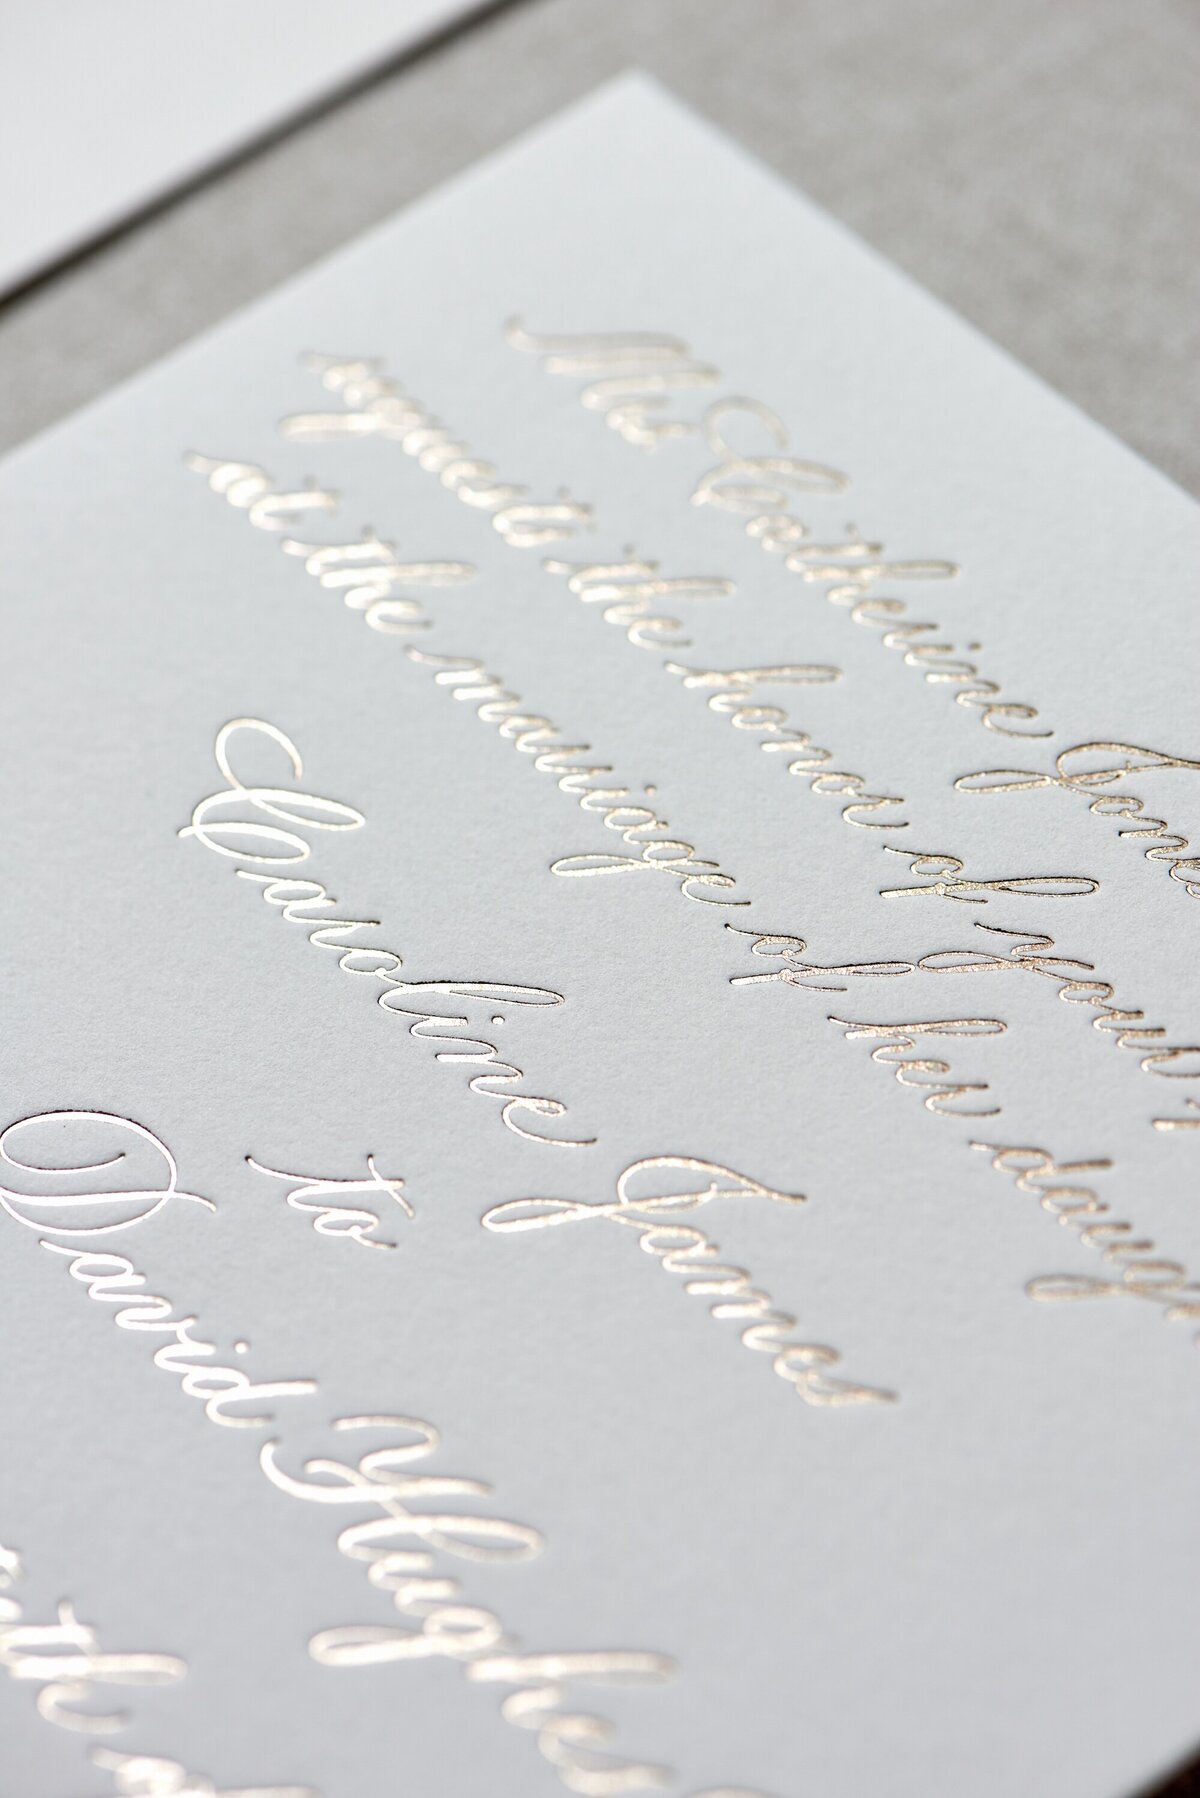 Mrs Catherine Jones
requests the honor of your
at the marriage of her daugh
Caroline James
to
David Hughes